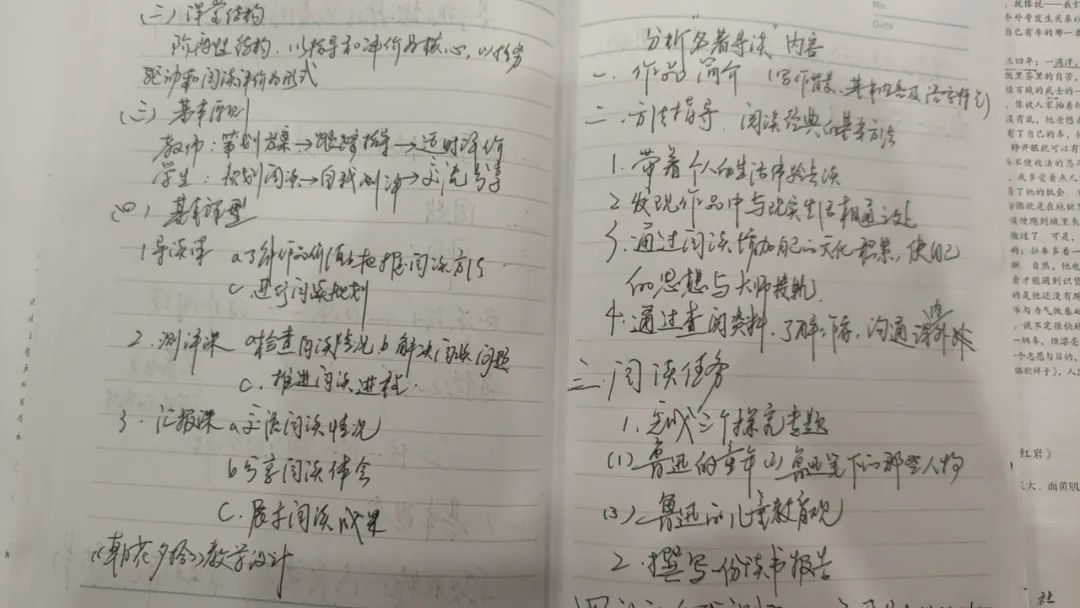 (二)课堂结构
阶段性结构,以指导和评价为核心,以任务
驱动和阅读评价为形式
(三)基本原则
教师:策划方案→跟踪指导→适时评价
学生:规划阅读→自我测评→交流分享
(四)基本课型
1 导读课 a了解作品价值b把握阅读方法
c.进行阅读规划
2.测评课 a检查阅读情况b解决阅读问题
c.推进阅读进程.
3.汇报课 a交流阅读情况
b分享阅读体会
c.展示阅读成果
《朝花夕拾》教学设计
No.
Date
分析“名著导读”内容
一.作品简介 (写作背景、基本内容及语言特色)
二.方法指导.阅读经典的基本方法
1.带着个人的生活体验去读
2 发现作品中与现实生活相通之处
3.通过阅读增加自己的文化积累,使自己
的思想与大师接轨.
4.通过查阅资料,了解,沟通课内外
三.阅读任务
1.完成三个探究专题
(1)鲁迅的童年(2)鲁迅笔下的那些人物
(3)鲁迅的儿童教育观
2.撰写一份读书报告